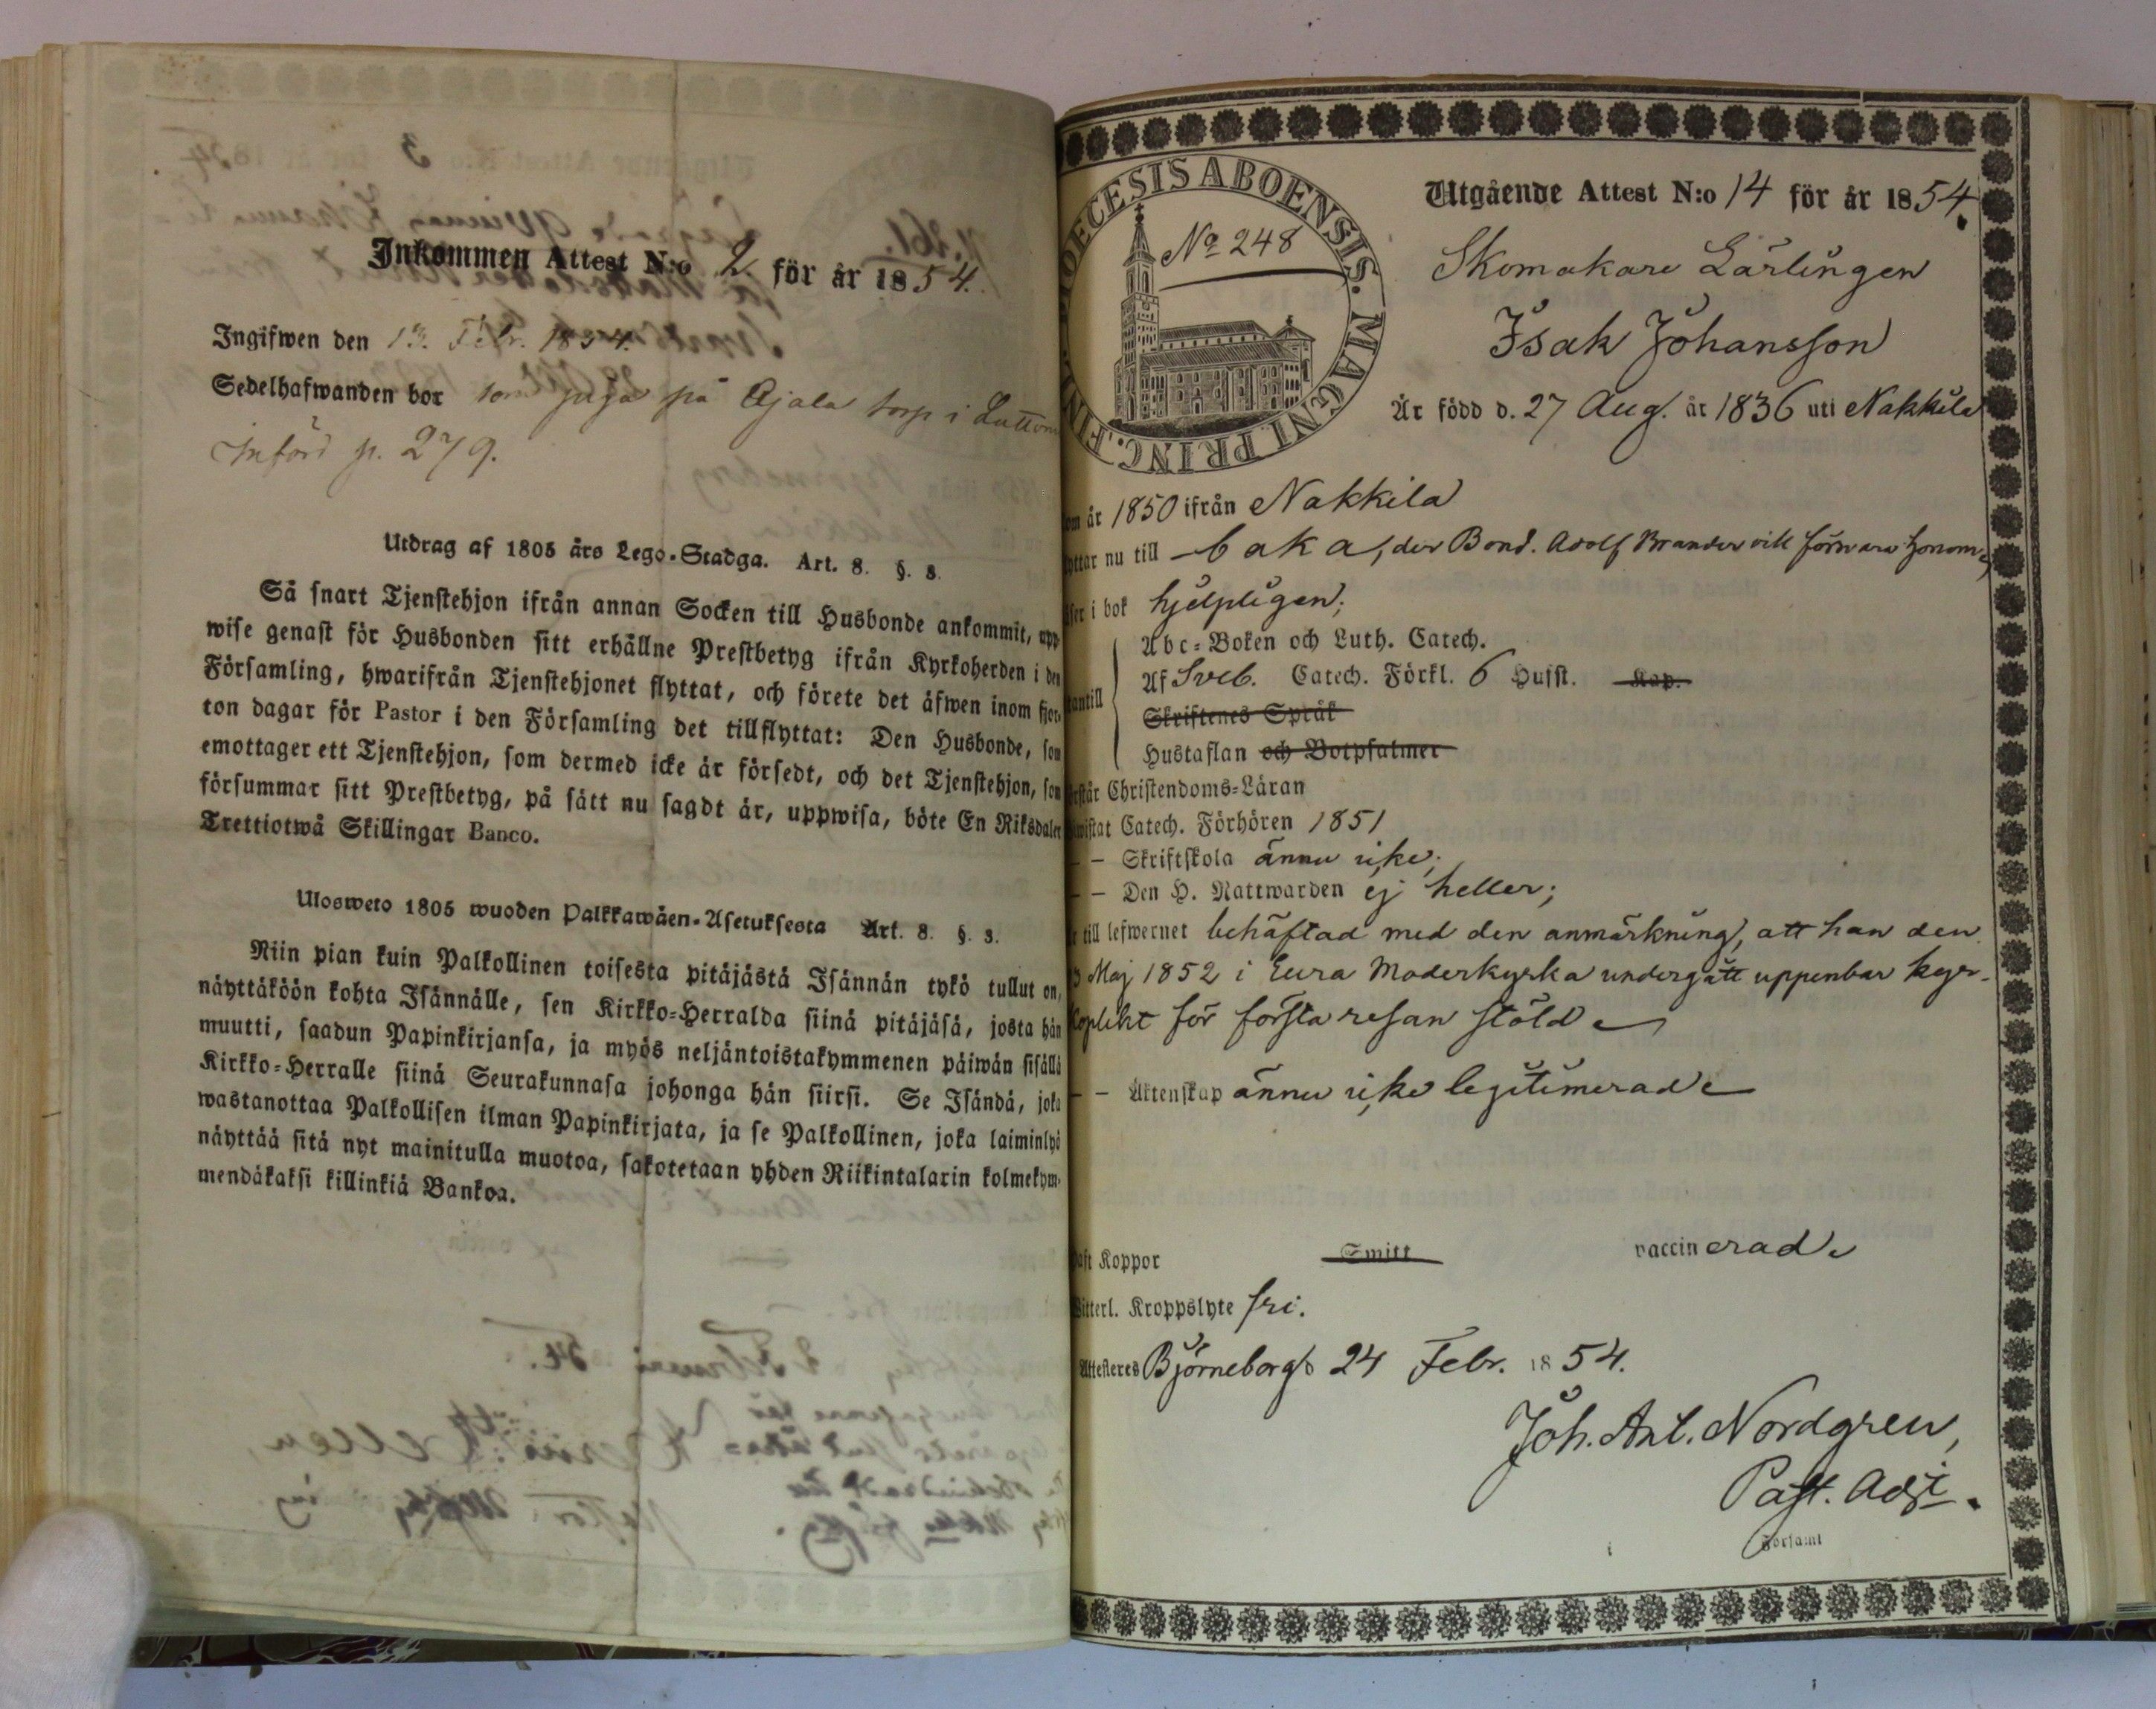 Inkommen Attest N:o 2. för år 1854.
Ingifwen den 13. Febr. 1854.
Sedelhafwanden bor som piga på Ajala torp i Luttom
Införd p. 279.
Utdrag af 1805 års Lego-Stadga. Art. 8. §. 8.
Så snart Tjenstehjon ifrån annan Socken till Husbonde ankommit, upp
wise genast för Husbonden sitt erhållne Prestbetyg ifrån Kyrkoherden i den
Församling, hwarifrån Tjenstehjonet flyttat, och förete det äfwen inom fjor-
ton dagar för Pastor i den Församling det tillflyttat: Den Husbonde, som
emottager ett Tjenstehjon, som dermed icke är försedt, och det Tjenstehjon, som
försummar sitt Prestbetyg, på sätt nu sagdt är, uppwisa, böte En Riksdaler
Trettiotwå Skillingar Banco.
Ulosweto 1805 wuoden Palkkawäen-Asetuksesta Art. 8. §. 3.
Niin pian kuin Palkollinen toisesta pitäjästä Isännän tykö tullut on,
näyttäköön kohta Isännälle, sen Kirkko-Herralda siinä pitäjäsä, josta hän
muutti, saadun Papinkirjansa, ja myös neljäntoistakymmenen päiwän sisällä
Kirkko-Herralle siinä Seurakunnasa johonga hän siirsi. Se Isändä, joka
wastanottaa Palkollisen ilman Papinkirjata, ja se Palkollinen, joka laiminlyö
näyttää sitä nyt mainitulla muotoa, sakotetaan yhden Riikintalarin kolmekym-
mendäkaksi killinkiä Bankoa.
DIOECESIS ABOENSIS. MAGNI PRINC. FINL.
No 248
Utgående Attest N:o 14 för år 1854.
Skomakare Lärlingen
Isak Johansson
Är född d. 27 Aug. år 1836 uti Nakkila
om år 1850 ifrån Nakkila
yttar nu till baka, der Bond. Adolf Brander vill förvara honom,
äser i bok hjelpligen;
tantill
Abc-Boken och Luth. Catech.
Af Sveb. Catech. Förkl. 6 Hufst. Kap.
Skriftenes Språk
Hustaflan och Botpsalmer
örstår Christendoms-Läran
iwistat Catech. Förhören 1851
– – Skriftskola ännu icke;
– – Den H. Nattwarden ej heller;
r till lefwernet behäftad med den anmärkning, att han den
Maj 1852 i Eura Moderkyrka undergått uppenbar kyr-
koplikt för första resan stöld
– – Äktenskap ännu icke legitimerad
aft Koppor Smitt vaccinerad
Witterl. Kroppslyte fri.
Attesteres Björneborg d 24 Febr. 1854.
Joh. Ant. Nordgren,
Past. Adj.
i Församl